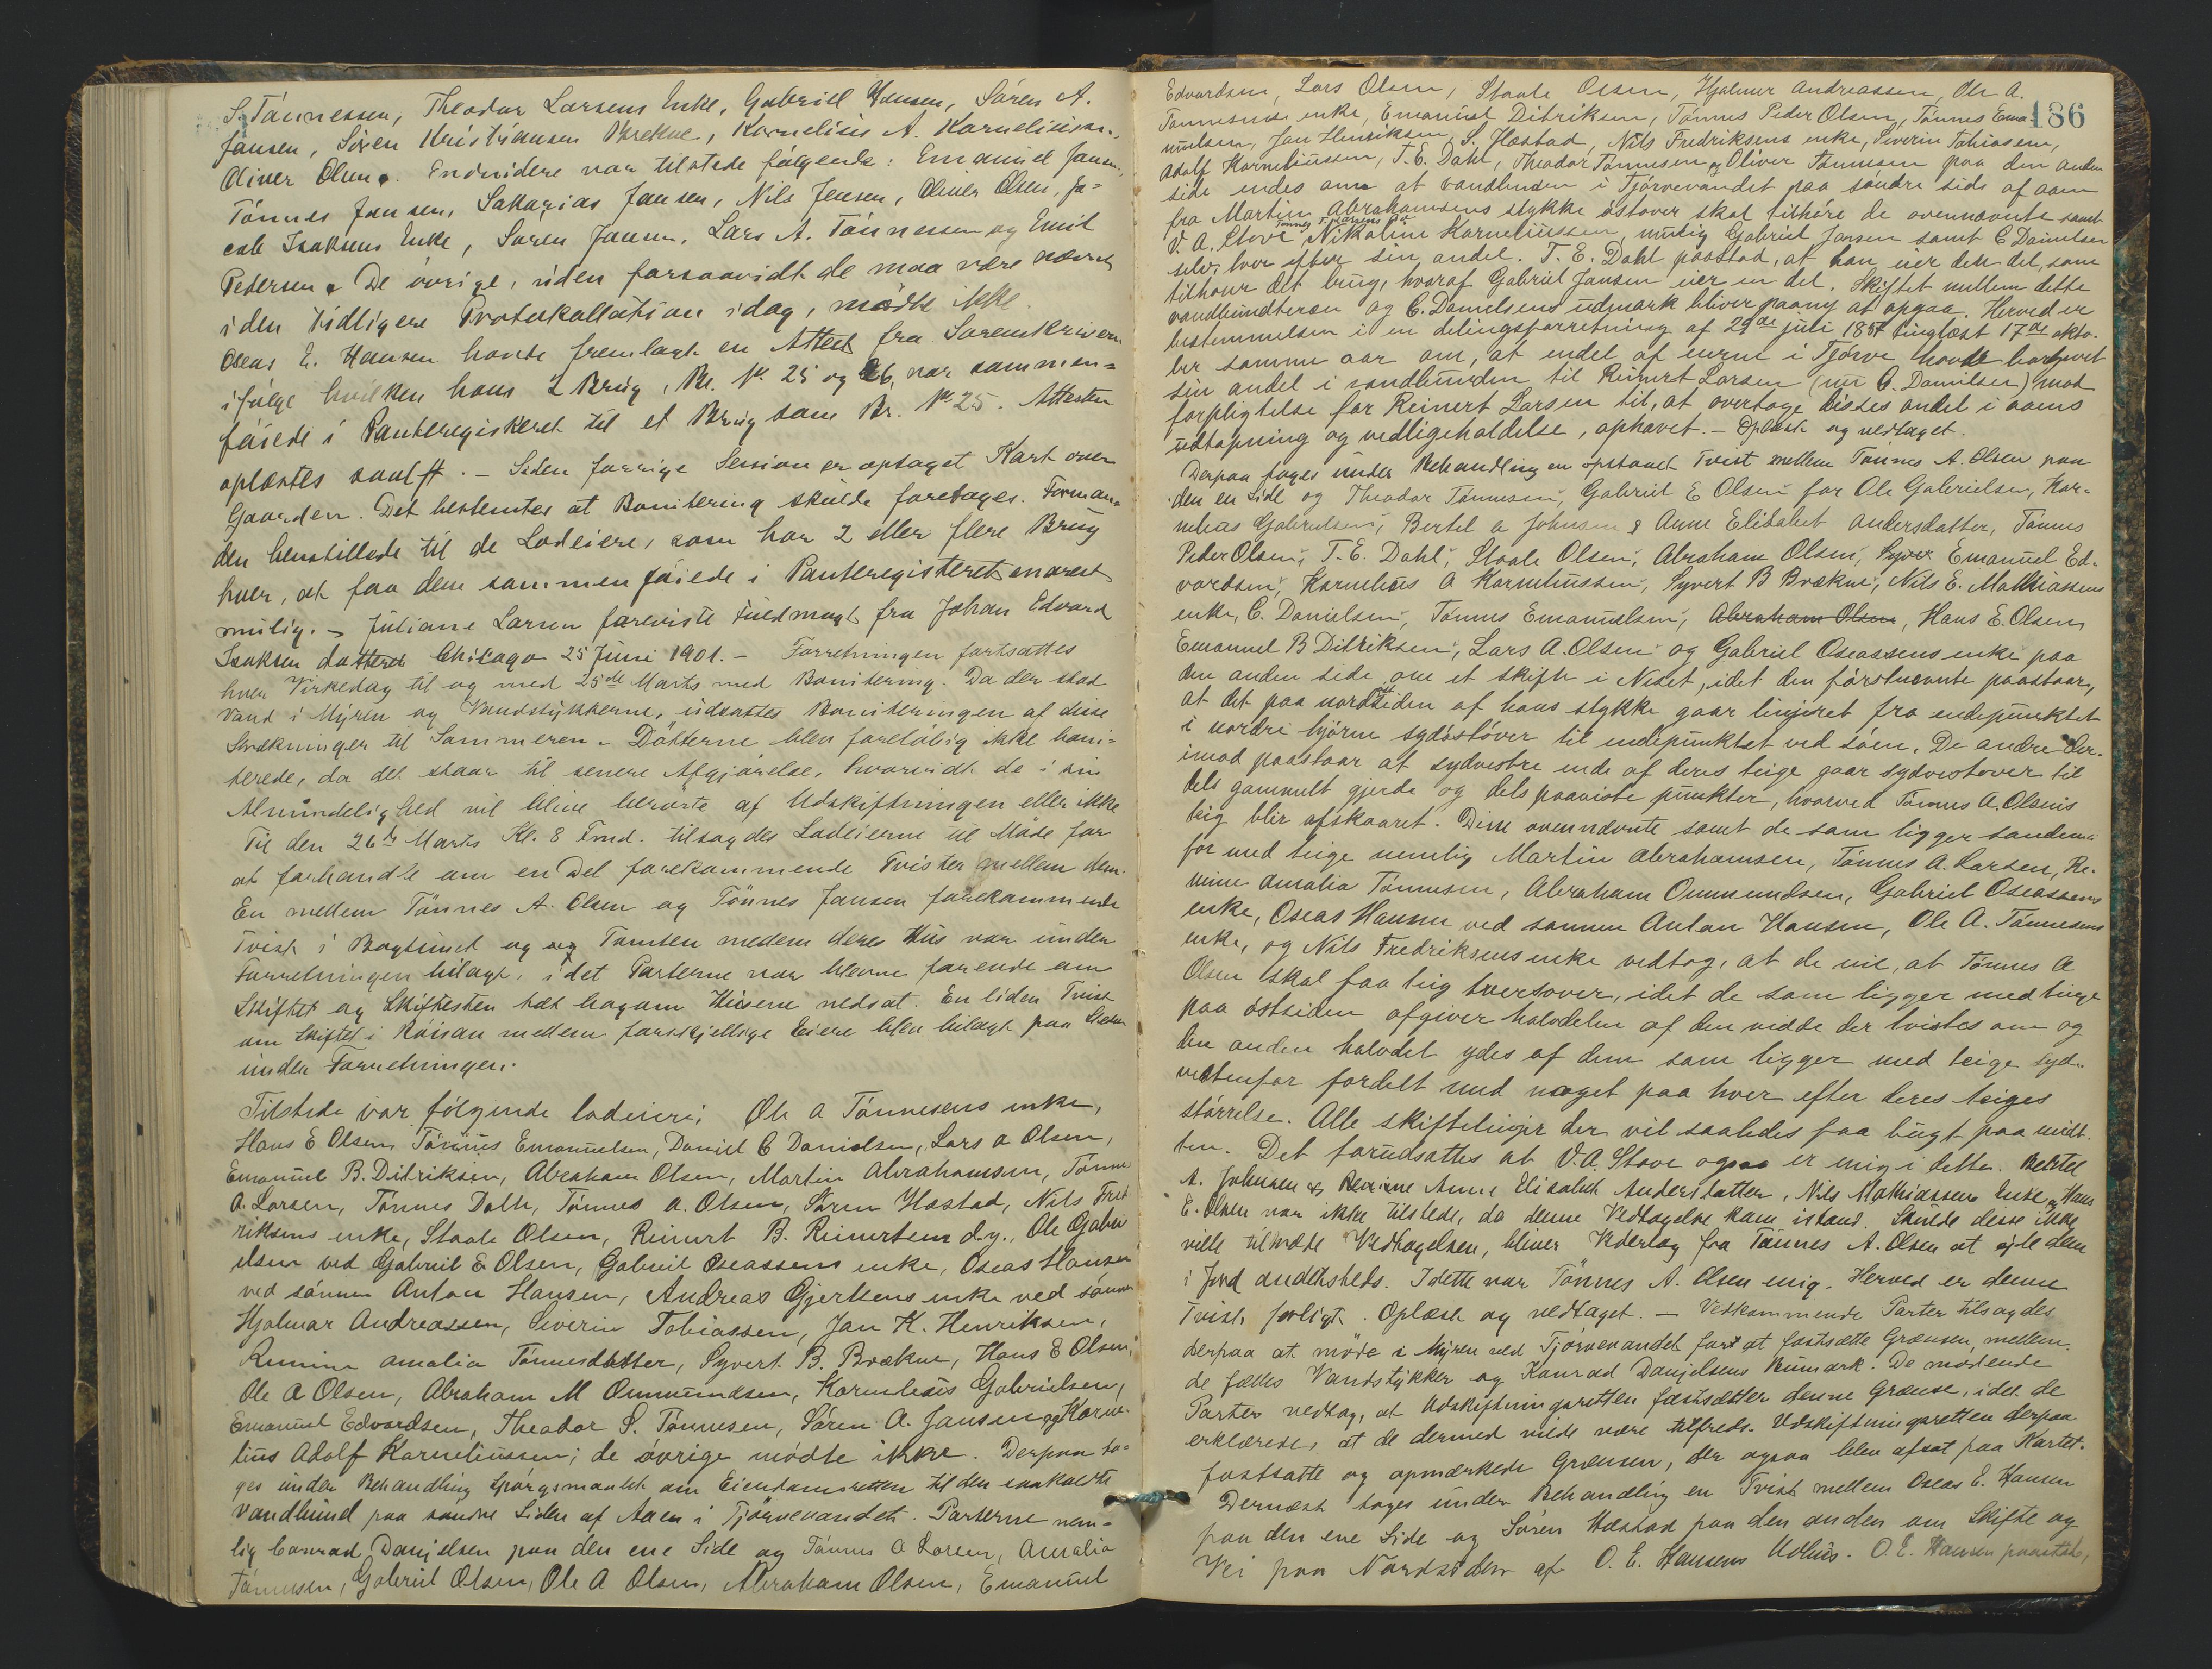 S. Tönnessen, Theodor Larsens Enke, Gabriel Hansen, Sören A.
Jansen, Sören Kristiansen Brekne, Kornelius A. Korneliussen,
Oliver Olsen. Endvidere var tilstede følgende: Emanuel Jansen,
Tönnes Jansen, Sakarias Jansen, Nils Jensen, Oliver Olsen, Ja=
cob Isaksens Enke, Sören Jansen, Lars A. Tönnessen og Emil
Pedersen. De övrige, uden forsaavidt de maa være nævnt
i den tidligere Protokollation idag, mödte ikke.
Oseas E. Hansen havde fremlagt en Attest fra Sorenskriveren
ifölge hvilken hans 2 Brug, Br. No 25 og 26, var sammen=
föiede i Panteregisteret til et Brug som Br. No 25. Attesten
oplæstes saalt. – Siden forrige Session er optaget Kart over
Gaarden. Det bestemtes at Bonitering skulde foretages. Forman=
den henstillede til de Lodeiere, som har 2 eller flere Brug
hver, at faa dem sammenföiede i Panteregisteret snarest
mulig. – Juliane Larsen foreviste Fuldmagt fra Johan Edvard
Isaksen dateret Chicago 25 Juni 1901. – Forretningen fortsattes
hver Virkedag til og med 25de Marts med Bonitering. Da der stod
Vand i Myren og Vandstykkerne, udsattes Boniteringen af disse
Strækninger til Sommeren. Dötterne blev foreløbig ikke boni=
terede, da det staar til senere Afgjörelse, hvorvidt de i sin
Almindelighed vil blive berörte af Udskiftningen eller ikke
Til den 26de Marts Kl. 8 Fmd. tilsagdes Lodeierne til Möde for
at forhandle om en Del forekommende Tvister mellem dem.
En mellem Tönnes A. Olsen og Tönnes Jansen forekommende
Tvist i Bogtunet og og Tomten mellem deres Hus var under
Forretningen bilagt, idet Parterne var blevne forenede om
Skiftet og Skiftesten tæt bagom Husene nedsat. En liden Tvist
om Skiftet i Röisan mellem forskjellige Eiere blev bilagt paa Stedet
under Forretningen.
Tilstede var fölgende lodeiere: Ole A Tönnesens enke,
Hans E Olsen, Tönnes Emanuelsen, Daniel C Danielsen, Lars A Olsen,
Emanuel B. Ditriksen, Abraham Olsen, Martin Abrahamsen, Tönnes
A. Larsen, Tönnes Dolle, Tönnes A. Olsen, Sören Hæstad, Nils Fred
riksens enke, Staale Olsen, Reinert B. Reinertsen d.y., Ole Gabri
elsen ved Gabriel E Olsen, Gabriel Oseassens enke, Oseas Hansen
ved sönnen Anton Hansen, Andreas Gjertsens enke ved sönnen
Hjalmar Andreassen, Siverin Tobiassen, Jan K. Henriksen,
Remine Amalia Tönnesdatter, Syvert B. Brækne, Hans E Olsen,
Ole A Olsen, Abraham M Ommundsen, Kornelius Gabrielsen,
Emanuel Edvardsen, Theodor S. Tönnesen, Sören A. Jansen og Korne
lius Adolf Korneliussen; de övrige mödte ikke. Derpaa to=
ges under Behandling Spörgsmaalet om Eiendomsretten til den saakaldte
Vandbund paa söndre Siden af Aaen i Tjörvevandet. Parterne nem=
lig Conrad Danjelsen paa den ene Side og Tönnes A Larsen, Amalia
Tönnesen, Gabriel Olsen, Ole A Olsen, Abraham Olsen, Emanuel
186
Edvardsen, Lars Olsen, Staale Olsen, Hjalmer Andreassen, Ole A.
Tönnesens enke, Emanuel Ditriksen, Tönnes Peder Olsen, Tönnes Ema-
nuelsen, Jan Henriksen, S. Hæstad, Nils Fredriksens enke, Siverin Tobiasen,
Adolf Korneliussen, T. E. Dahl, Theodor Tönnesen og Oliver Tönnesen paa den anden
side endes om at vandbunden i Tjörvevandet paa söndre side af aaen
fra Martin Abrahamsens stykke östover skal tilhöre de ovennævnte samt
V. A. Stove, Nikoline Korneliussen, Gabriel Jansen samt C Danielsen
selv, hver efter sin andel. T. E. Dahl paastod, at han eier den del, som
tilhører det brug, hvoraf Gabriel Jansen eier en del. Skiftet mellem dette
vandbundteræn og C. Danielsens udmark bliver paany at opgaa. Herved er
bestemmelsen i en delingsforretning af 29de juli 1857 tinglæst 17de okto-
ber samme aar om, at endel af eierne i Tjörve havde borgivet
sin andel i vandbunden til Reinert Larsen (nu C. Danielsen) mod
forpligtelse for Reinert Larsen til, at overtage disses andel i aaens
udtapning og vedligeholdelse, ophævet. – Oplæst og vedtaget.
Derpaa toges under Behandling en opstaaet Tvist mellem Tönnes A. Olsen paa
den en side og Theodor Tönnesen, Gabriel E Olsen for Ole Gabrielsen, Kor-
nelias Gabrielsen, Bertel A Johnsen & Anne Elisabet Andersdatter, Tönnes
Peder Olsen, T. E. Dahl, Staale Olsen, Abraham Olsen, Syver Emanuel Ed-
vardsen, Kornelius A Korneliussen, Syvert B Brækne, Nils E. Mathiassens
enke, C. Danielsen, Tönnes Emanuelsen, Abraham Olsen, Hans E. Olsen,
Emanuel B Ditriksen, Lars A. Olsen og Gabriel Oseassens enke paa
den anden side om et skifte i Neset, idet den förstnævnte paastaar,
at det paa nordsiden af hans stykke gaar linjeret fra endepunktet
i nordre hjörne sydöstover til endepunktet ved söen. De andre der-
imod paastaar at sydvestre ende af deres teige gaar sydvestover til
dels gammelt gjerde og dels paaviste punkter, hvorved Tönnes A. Olsens
teig blir afskaaret. Disse ovennævnte samt de som ligger sönden-
for med teige nemlig Martin Abrahamsen, Tönnes A. Larsen, Re-
mine Amalia Tönnesen, Abraham Ommundsen, Gabriel Oseassens
enke, Oseas Hansen ved sönnen Anton Hansen, Ole A. Tönnesens
enke, og Nils Fredriksens enke vedtog, at de vil, at Tönnes A
Olsen skal faa teig tversover, idet de som ligger med teige
paa östsiden afgiver halvdelen af den vidde der tvistes om og
den anden halvdel ydes af dem som ligger med teige syd-
vestenfor fordelt med noget paa hver efter deres teiges
störrelse. Alle skiftelinjer der vil saaledes faa bugt paa midt-
ten. Det forudsattes at V. A. Stove ogsaa er enig i dette. Bertel
A. Johnsen og Anne Elisabet Andersdatter, Nils Mathiassens Enke og Hans
E. Olsen var ikke tilstede, da denne Vedtagelse kom istand. Skulde disse ikke
ville tiltræde Vedtagelsen, bliver Vederlag fra Tönnes A. Olsen at yde dem
i Jord andetsteds. I dette var Tönnes A. Olsen enig. Herved er denne
Tvist forligt. Oplæst og vedtaget. – Vedkommende Parter tilsagdes
derpaa at möde i Myren ved Tjörvevandet for at fastsætte Grænsen mellem
de fælles Vandstykker og Konrad Danjelsens Udmark. De mödende
Parter vedtog, at Udskiftningsretten fastsætter denne Grænse, idet de
erklærede, at de dermed vilde være tilfreds. Udskiftningsretten derpaa
fastsatte og opmærkede Grænsen, der ogsaa blev afsat paa Kartet.
Dernæst toges under Behandling en Tvist mellem Oseas E. Hansen
paa den ene Side og Sören Hæstad paa den anden om Skifte og
Vei paa Nordsiden af O. E. Hansens Udhus. O. E. Hansen paastod,